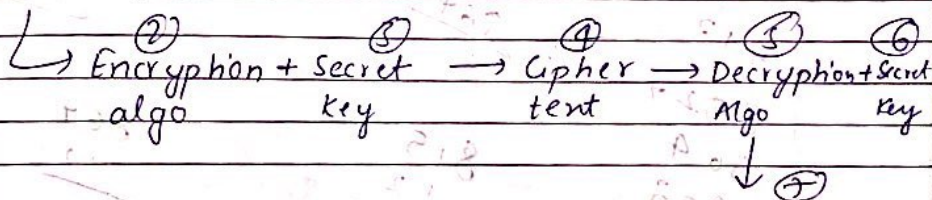 ② ③ ④ ⑤ ⑥
↳ Encryphion + Secret → Cipher → Decryphion + Secret
algo key tent Algo key
↓ ⑦